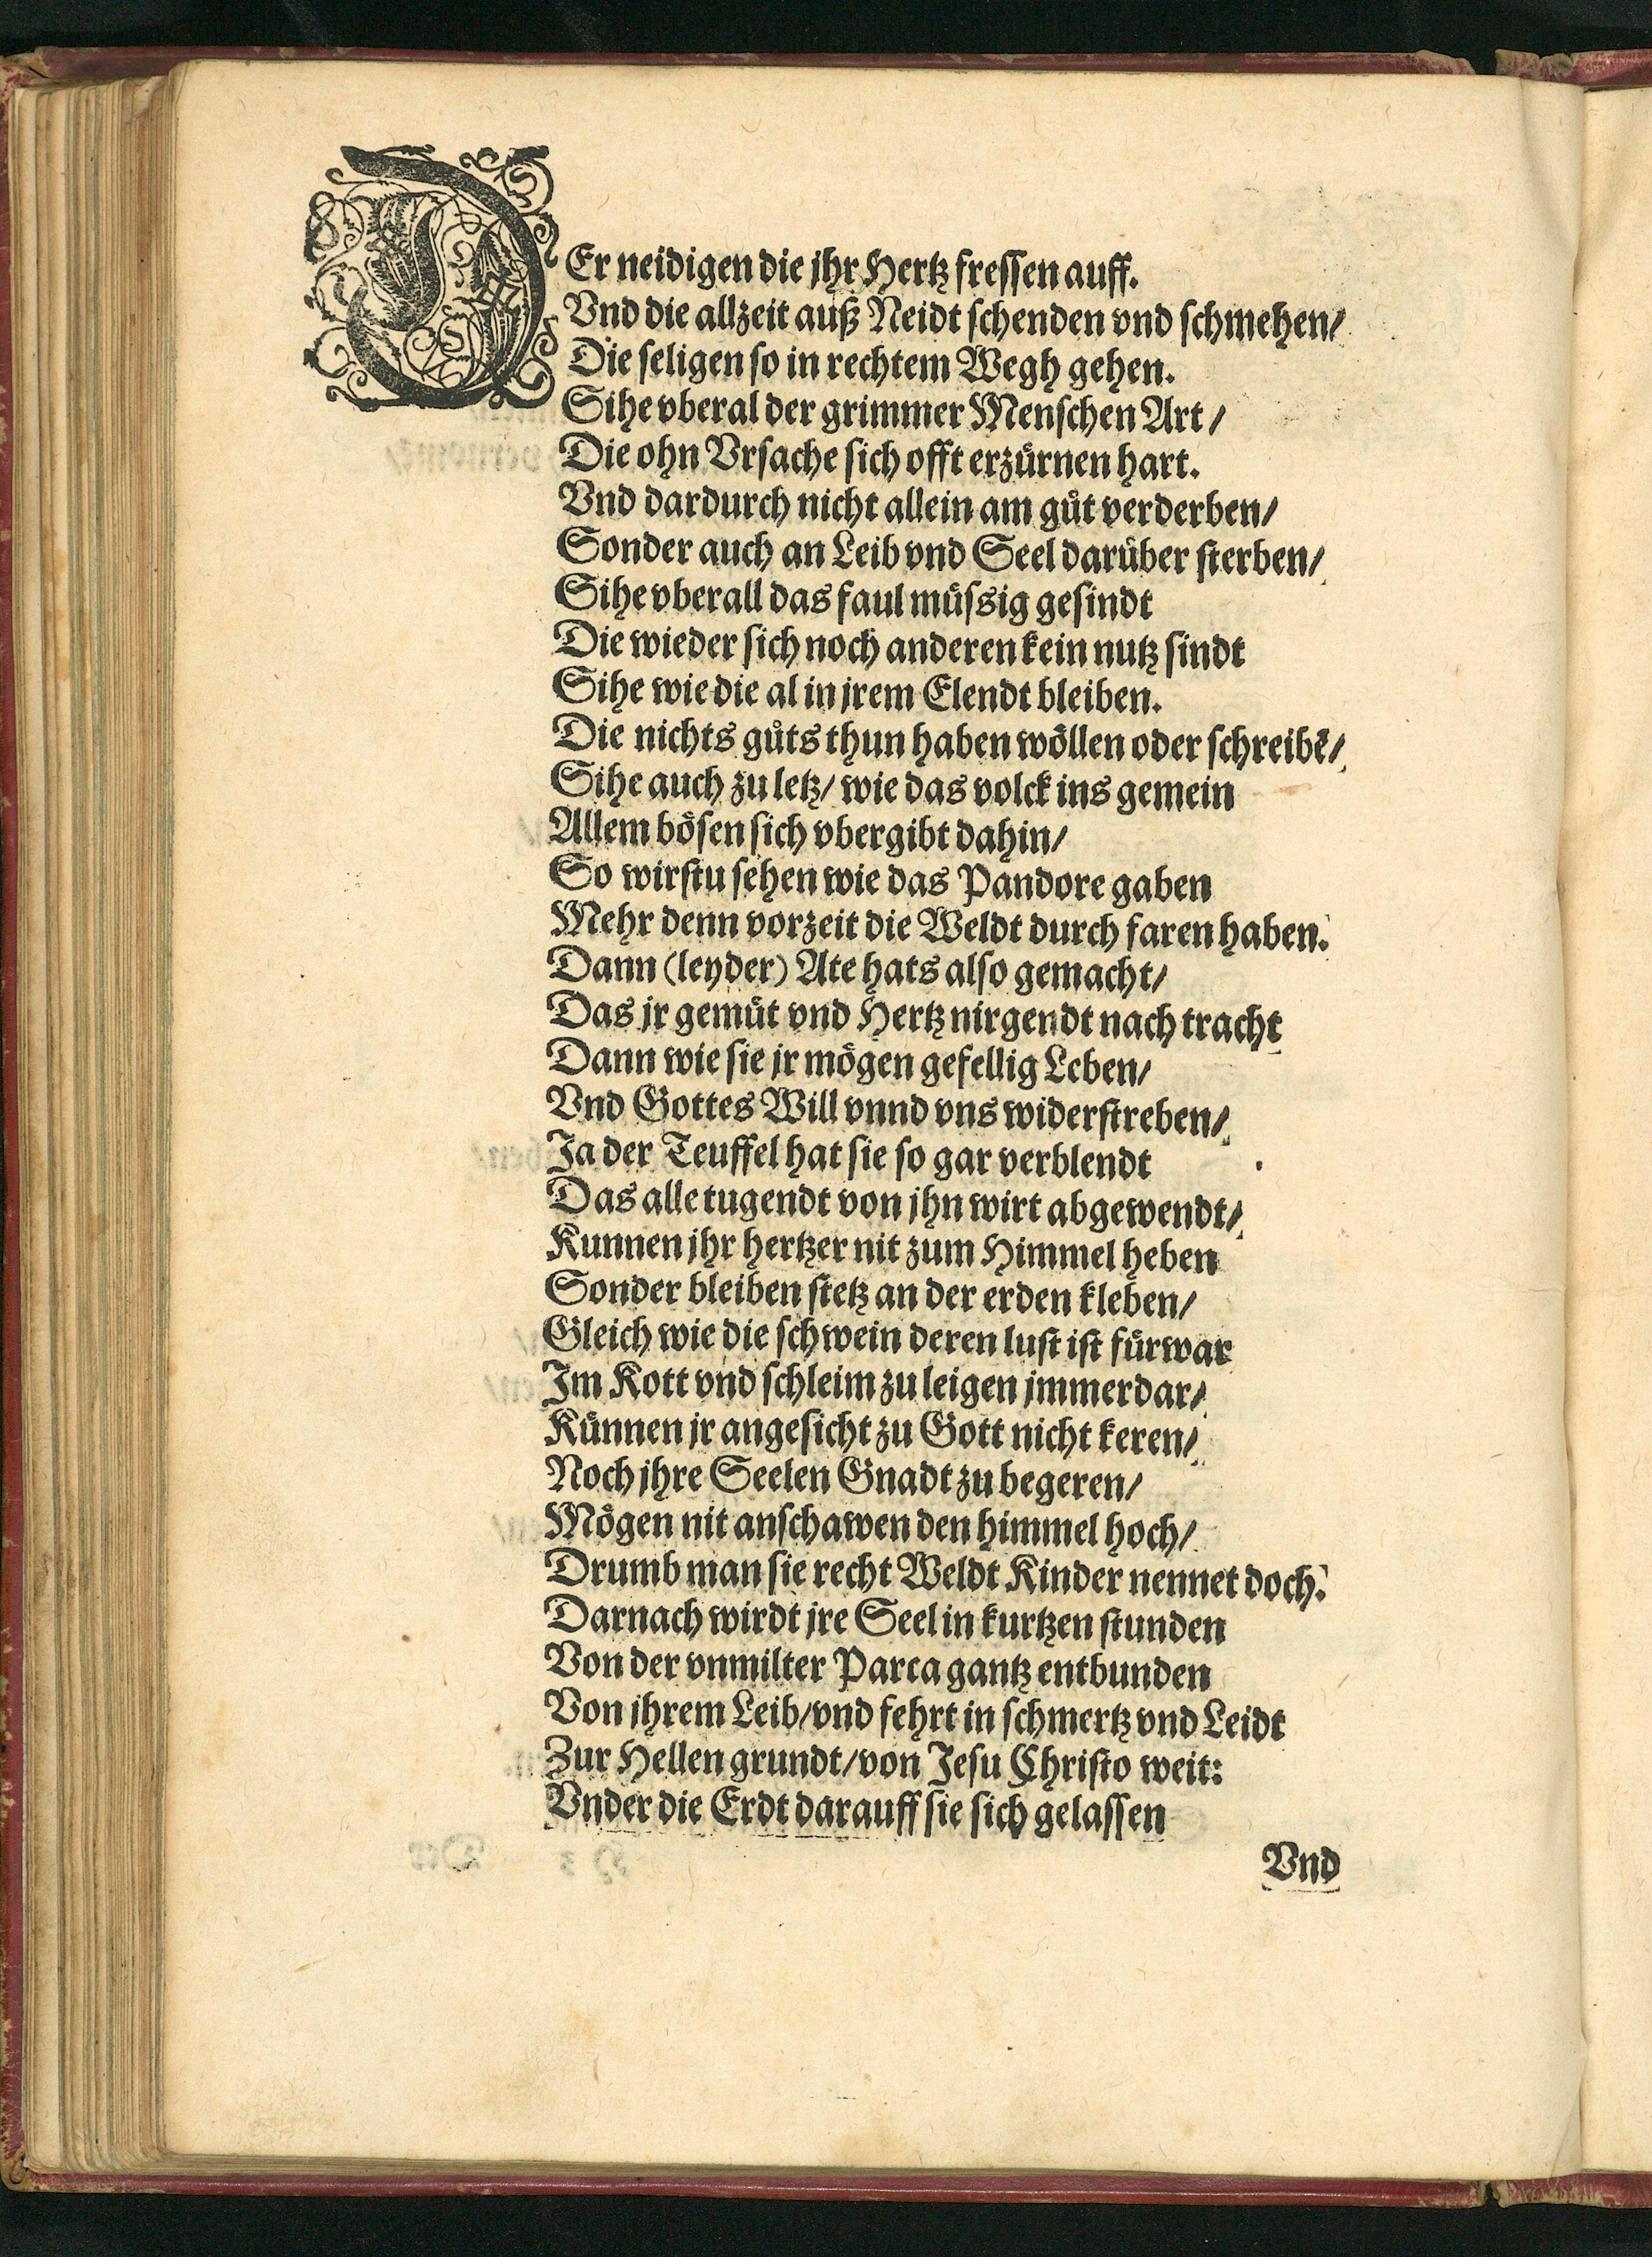 DEr neidigen die jhr Hertz fressen auff.
Vnd die allzeit auß Neidt schenden vnd schmehen/
Die seligen so in rechtem Wegh gehen.
Sihe vberal der grimmer Menschen Art/
Die ohn Vrsache sich offt erzürnen hart.
Vnd dardurch nicht allein am gůt verderben/
Sonder auch an Leib vnd Seel darüber sterben/
Sihe vberall das faul müssig gesindt
Die wieder sich noch anderen kein nutz sindt
Sihe wie die al in jrem Elendt bleiben.
Die nichts gůts thun haben wöllen oder schreibẽ/
Sihe auch zu letz/ wie das volck ins gemein
Allem bösen sich vbergibt dahin/
So wirstu sehen wie das Pandore gaben
Mehr denn vorzeit die Weldt durch faren haben.
Dann (leyder) Ate hats also gemacht/
Das jr gemüt vnd Hertz nirgendt nach tracht
Dann wie sie jr mögen gefellig Leben/
Vnd Gottes Will vnnd vns widerstreben/
Ja der Teuffel hat sie so gar verblendt
Das alle tugendt von jhn wirt abgewendt/
Kunnen jhr hertzer nit zum Himmel heben
Sonder bleiben stetz an der erden kleben/
Gleich wie die schwein deren lust ist fürwar
Im Kott vnd schleim zu leigen jmmerdar/
Künnen jr angesicht zu Gott nicht keren/
Noch jhre Seelen Gnadt zu begeren/
Mögen nit anschawen den himmel hoch/
Drumb man sie recht Weldt Kinder nennet doch.
Darnach wirdt jre Seel in kurtzen stunden
Von der vnmilter Parca gantz entbunden
Von jhrem Leib/vnd fehrt in schmertz vnd Leidt
Zur Hellen grundt/von Jesu Christo weit:
Vnder die Erdt darauff sie sich gelassen
Vnd